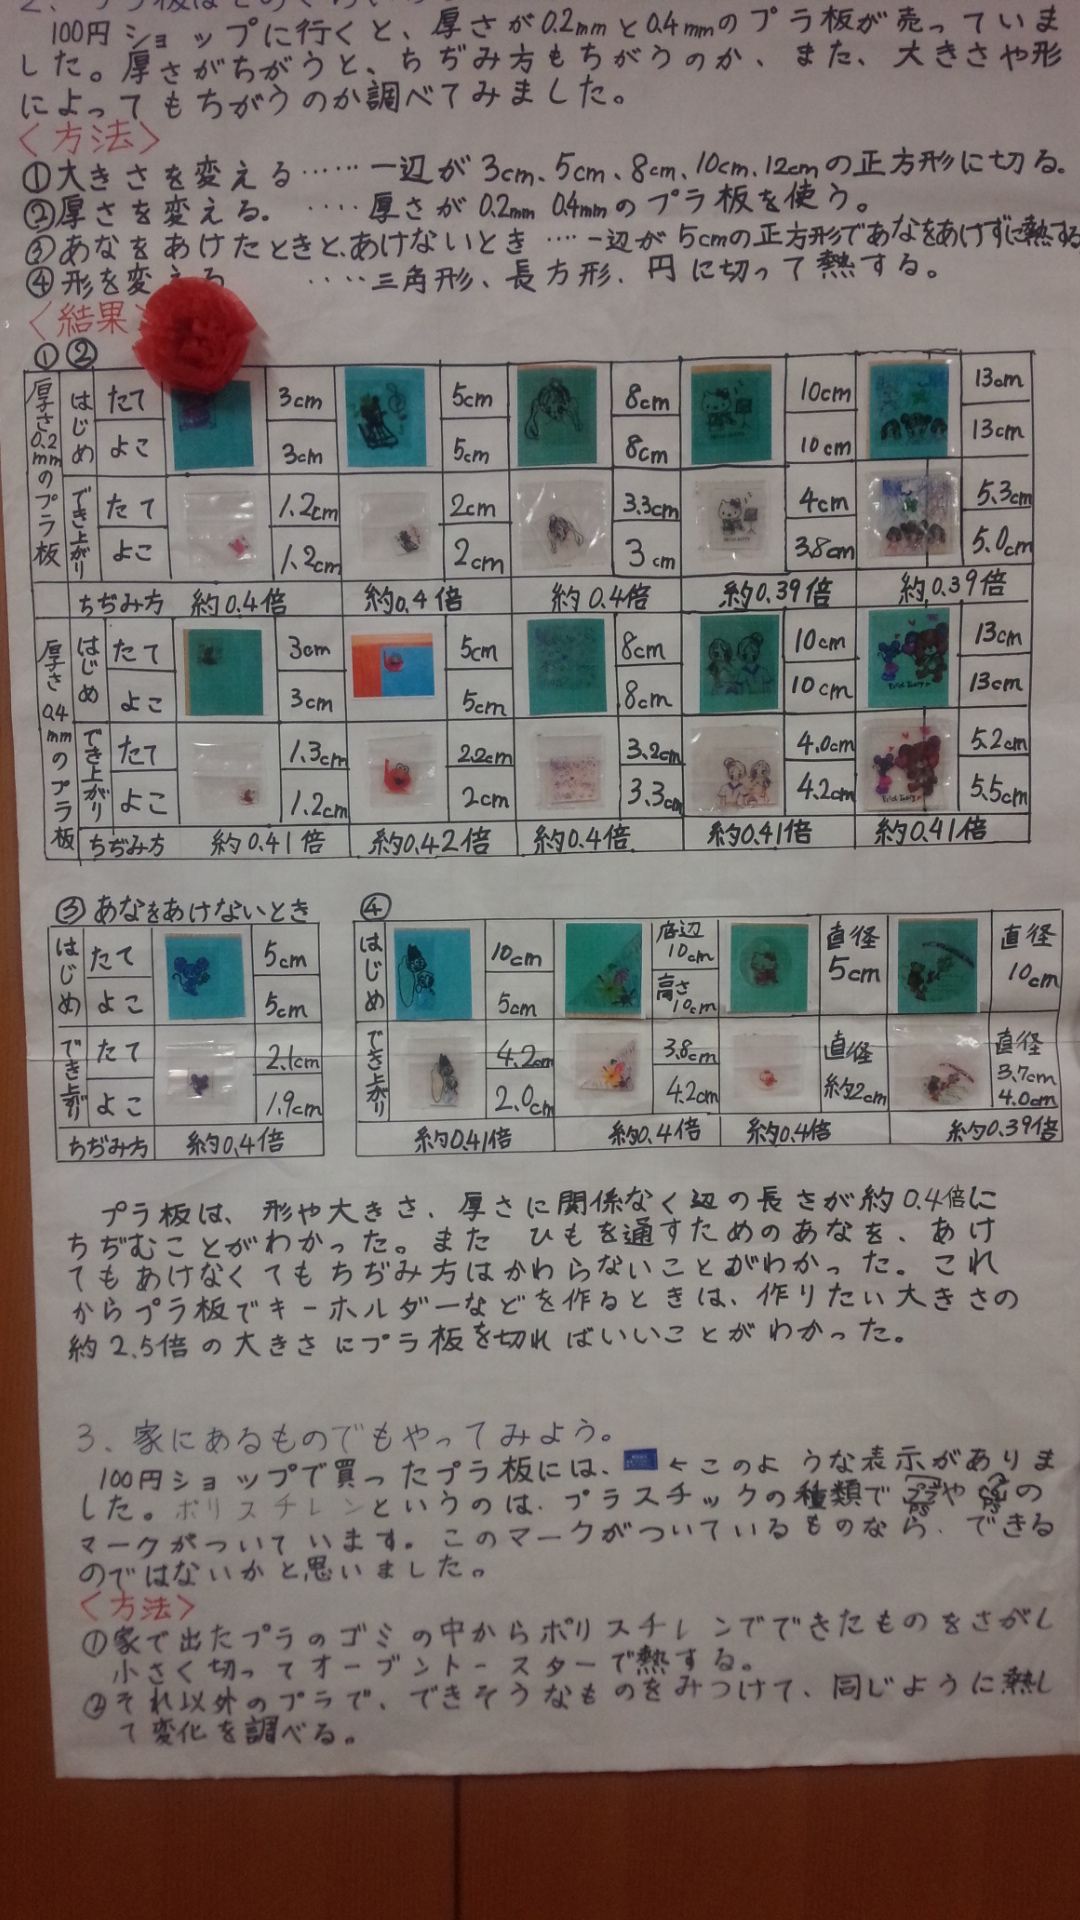 100円ショップに行くと、厚さが0.2mmと0.4mmのプラ板が売っていま
した。厚さがちがうと、ちぢみ方もちがうのか、また、大きさや形
によってもちがうのか調べてみました。
〈方法〉
①大きさを変える‥‥‥一辺が3cm、5cm、8cm、10cm、12cmの正方形に切る。
②厚さを変える。‥‥厚さが0.2mm 0.4mmのプラ板を使う。
③あなをあけたときと、あけないとき‥‥一辺が5cmの正方形であなをあけずに熱する
④形を変える ‥‥三角形、長方形、円に切って熱する。
〈結果〉
①②
厚さ0.2mmのプラ板
はじめ たて 3cm 5cm 8cm 10cm 13cm
よこ 3cm 5cm 8cm 10cm 13cm
でき上がり たて 1.2cm 2cm 3.3cm 4cm 5.3cm
よこ 1.2cm 2cm 3cm 3.8cm 5.0cm
ちぢみ方 約0.4倍 約0.4倍 約0.4倍 約0.39倍 約0.39倍
厚さ0.4mmのプラ板
はじめ たて 3cm 5cm 8cm 10cm 13cm
よこ 3cm 5cm 8cm 10cm 13cm
でき上がり たて 1.3cm 2.2cm 3.2cm 4.0cm 5.2cm
よこ 1.2cm 2cm 3.3cm 4.2cm 5.5cm
ちぢみ方 約0.41倍 約0.42倍 約0.4倍 約0.41倍 約0.41倍
③あなをあけないとき
はじめ たて 5cm
よこ 5cm
でき上がり たて 2.1cm
よこ 1.9cm
ちぢみ方 約0.4倍
④
はじめ 10cm 底辺10cm 直径5cm 直径10cm
5cm 高さ10cm
でき上がり 4.2cm 3.8cm 直径約2cm 直径3.7cm
2.0cm 4.2cm 4.0cm
約0.41倍 約0.4倍 約0.4倍 約0.39倍
プラ板は、形や大きさ、厚さに関係なく辺の長さが約0.4倍に
ちぢむことがわかった。また ひもを通すためのあなを、あけ
てもあけなくてもちぢみ方はかわらないことがわかった。これ
からプラ板でキーホルダーなどを作るときは、作りたい大きさの
約2.5倍の大きさにプラ板を切ればいいことがわかった。
3、家にあるものでもやってみよう。
100円ショップで買ったプラ板には、←このような表示がありま
した。ポリスチレンというのは、プラスチックの種類でプラPSやPSの
マークがついています。このマークがついているものなら、できる
のではないかと思いました。
〈方法〉
①家で出たプラのゴミの中からポリスチレンでできたものをさがし
小さく切ってオーブントースターで熱する。
②それ以外のプラで、できそうなものをみつけて、同じように熱し
て変化を調べる。